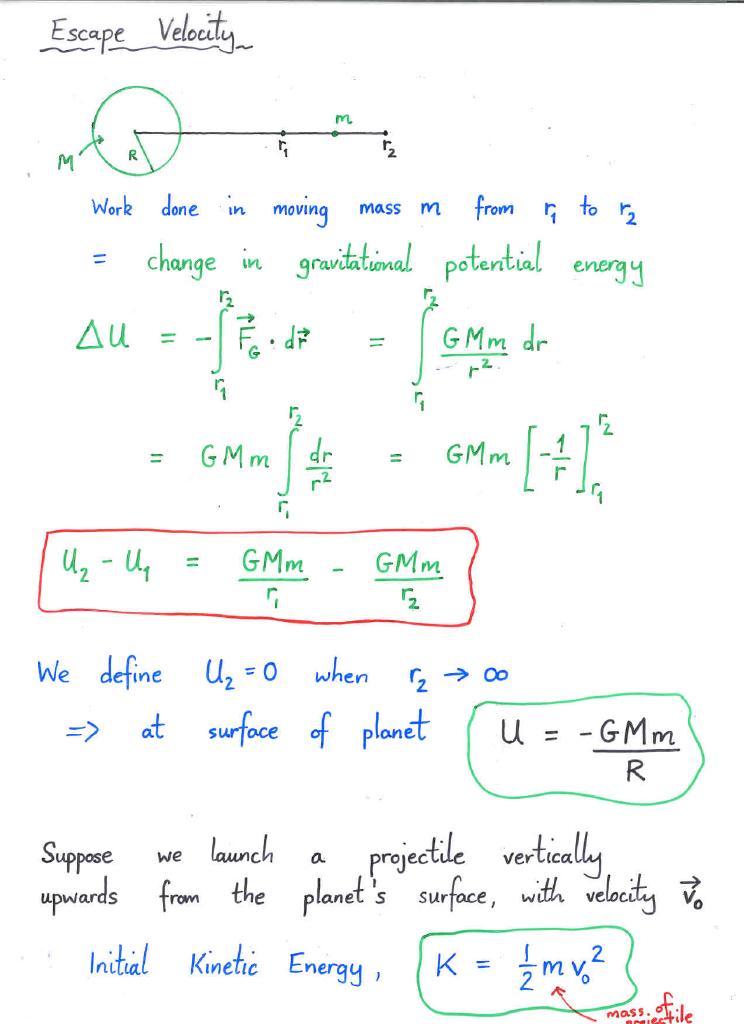 Escape Velocity
m
M R r₁ r₂
Work done in moving mass m from r₁ to r₂
= change in gravitational potential energy
ΔU = -∫_{r₁}^{r₂} F⃗_G · dr⃗ = ∫_{r₁}^{r₂} GMm/r² dr
= GMm ∫_{r₁}^{r₂} dr/r² = GMm [-1/r]_{r₁}^{r₂}
U₂ - U₁ = GMm/r₁ - GMm/r₂
We define U₂ = 0 when r₂ → ∞
=> at surface of planet U = -GMm/R
Suppose we launch a projectile vertically
upwards from the planet's surface, with velocity v⃗₀
Initial Kinetic Energy, K = 1/2 m v₀²
mass of
projectile